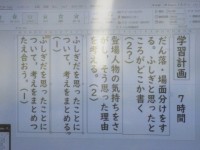 学習計画　７時間
だん落・場面分けをす
る。ふしぎと思ったと
ころがどこか書く。
(2?)
登場人物の気持ちをさ
がし、そう思った理由
を考える。(2)
ふしぎだを思ったことに
ついて、考えをまとめる。
(1)
ふしぎだを思ったことに
ついて、考えをまとめつ
たえ合おう。(1)